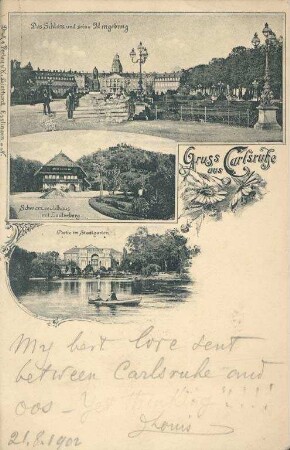 Das Schloss und seine Umgebung
Gruss
aus
Carlsruhe
Schwarzwaldhaus
mit Lauterberg
Partie im Stadtgarten
My best love sent
between Carlsruhe and
oos -
Louis
21.8.1902